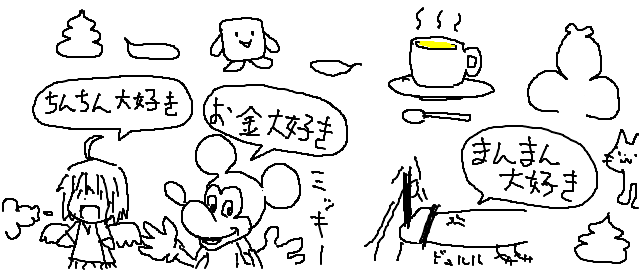 ちんちん大好き
お金大好き
ミッキー
まんまん
大好き
ビュルルル